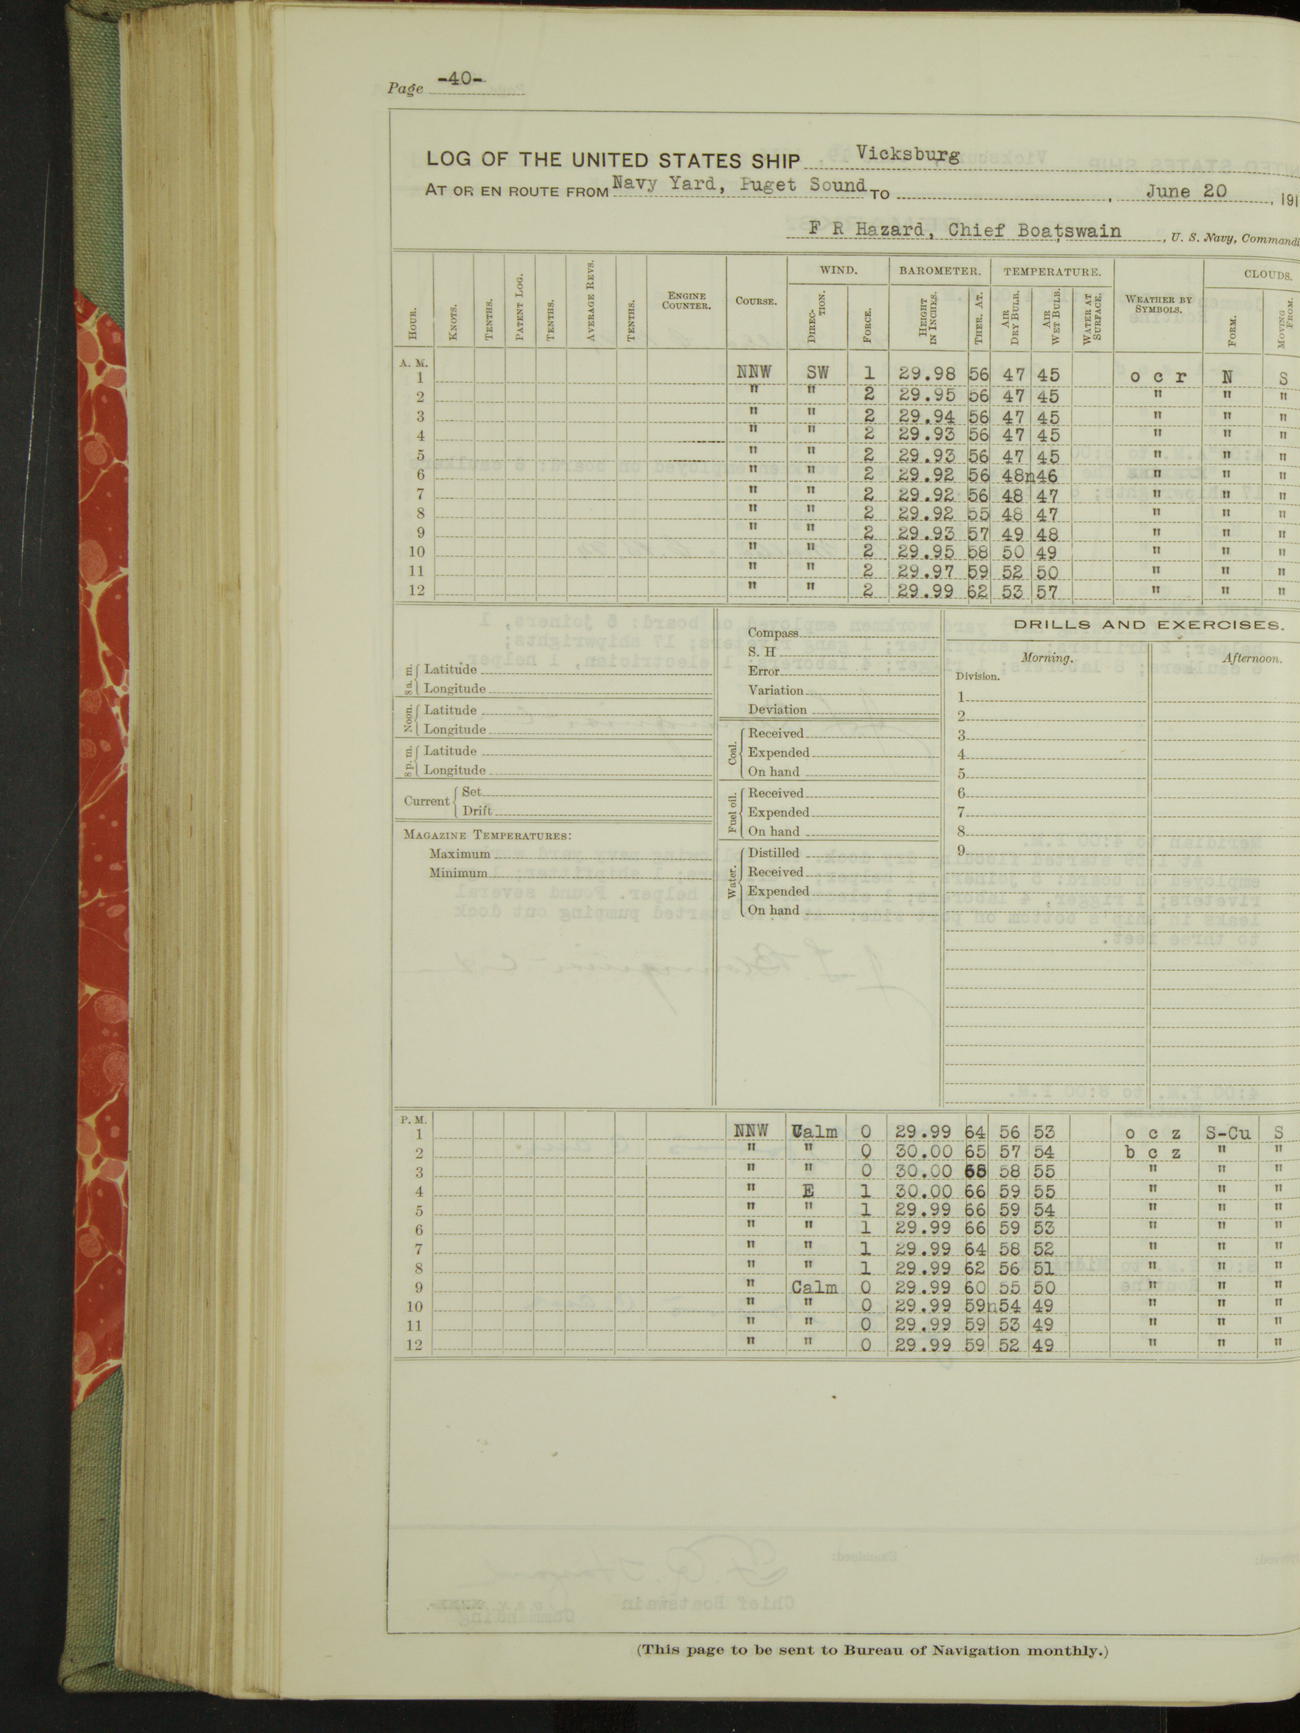 Page -40-
LOG OF THE UNITED STATES SHIP Vicksburg
AT OR EN ROUTE FROM Navy Yard, Puget Sound TO , June 20 , 191
F R Hazard, Chief Boatswain , U. S. Navy, Commandi
WIND. BAROMETER. TEMPERATURE. CLOUDS.
HOUR. KNOTS. TENTHS. PATENT LOG. TENTHS. AVERAGE REVS. TENTHS. ENGINE COUNTER. COURSE. DIREC-TION. FORCE. HEIGHT IN INCHES. THER. AT. AIR DRY BULB. AIR WET BULB. WATER AT SURFACE. WEATHER BY SYMBOLS. FORM. MOVING FROM.
A. M.
1 NNW SW 1 29.98 56 47 45 o c r N S
2 " " 2 29.95 56 47 45 " " "
3 " " 2 29.94 56 47 45 " " "
4 " " 2 29.93 56 47 45 " " "
5 " " 2 29.93 56 47 45 " " "
6 " " 2 29.92 56 48n46 " " "
7 " " 2 29.92 56 48 47 " " "
8 " " 2 29.92 55 48 47 " " "
9 " " 2 29.93 57 49 48 " " "
10 " " 2 29.95 58 50 49 " " "
11 " " 2 29.97 59 52 50 " " "
12 " " 2 29.99 62 53 57 " " "
8 a. m. Latitude
Longitude
Noon. Latitude
Longitude
8 p. m. Latitude
Longitude
Current Set
Drift
MAGAZINE TEMPERATURES:
Maximum
Minimum
Compass
S. H
Error
Variation
Deviation
Coal. Received
Expended
On hand
Fuel oil. Received
Expended
On hand
Water. Distilled
Received
Expended
On hand
DRILLS AND EXERCISES.
Morning. Afternoon.
Division.
1
2
3
4
5
6
7
8
9
P. M.
1 NNW Calm 0 29.99 64 56 53 o c z S-Cu S
2 " " 0 30.00 65 57 54 b c z " "
3 " " 0 30.00 58 55 " " "
4 " E 1 30.00 66 59 55 " " "
5 " " 1 29.99 66 59 54 " " "
6 " " 1 29.99 66 59 53 " " "
7 " " 1 29.99 64 58 52 " " "
8 " " 1 29.99 62 56 51 " " "
9 " Calm 0 29.99 60 55 50 " " "
10 " " 0 29.99 59n54 49 " " "
11 " " 0 29.99 59 53 49 " " "
12 " " 0 29.99 59 52 49 " " "
(This page to be sent to Bureau of Navigation monthly.)